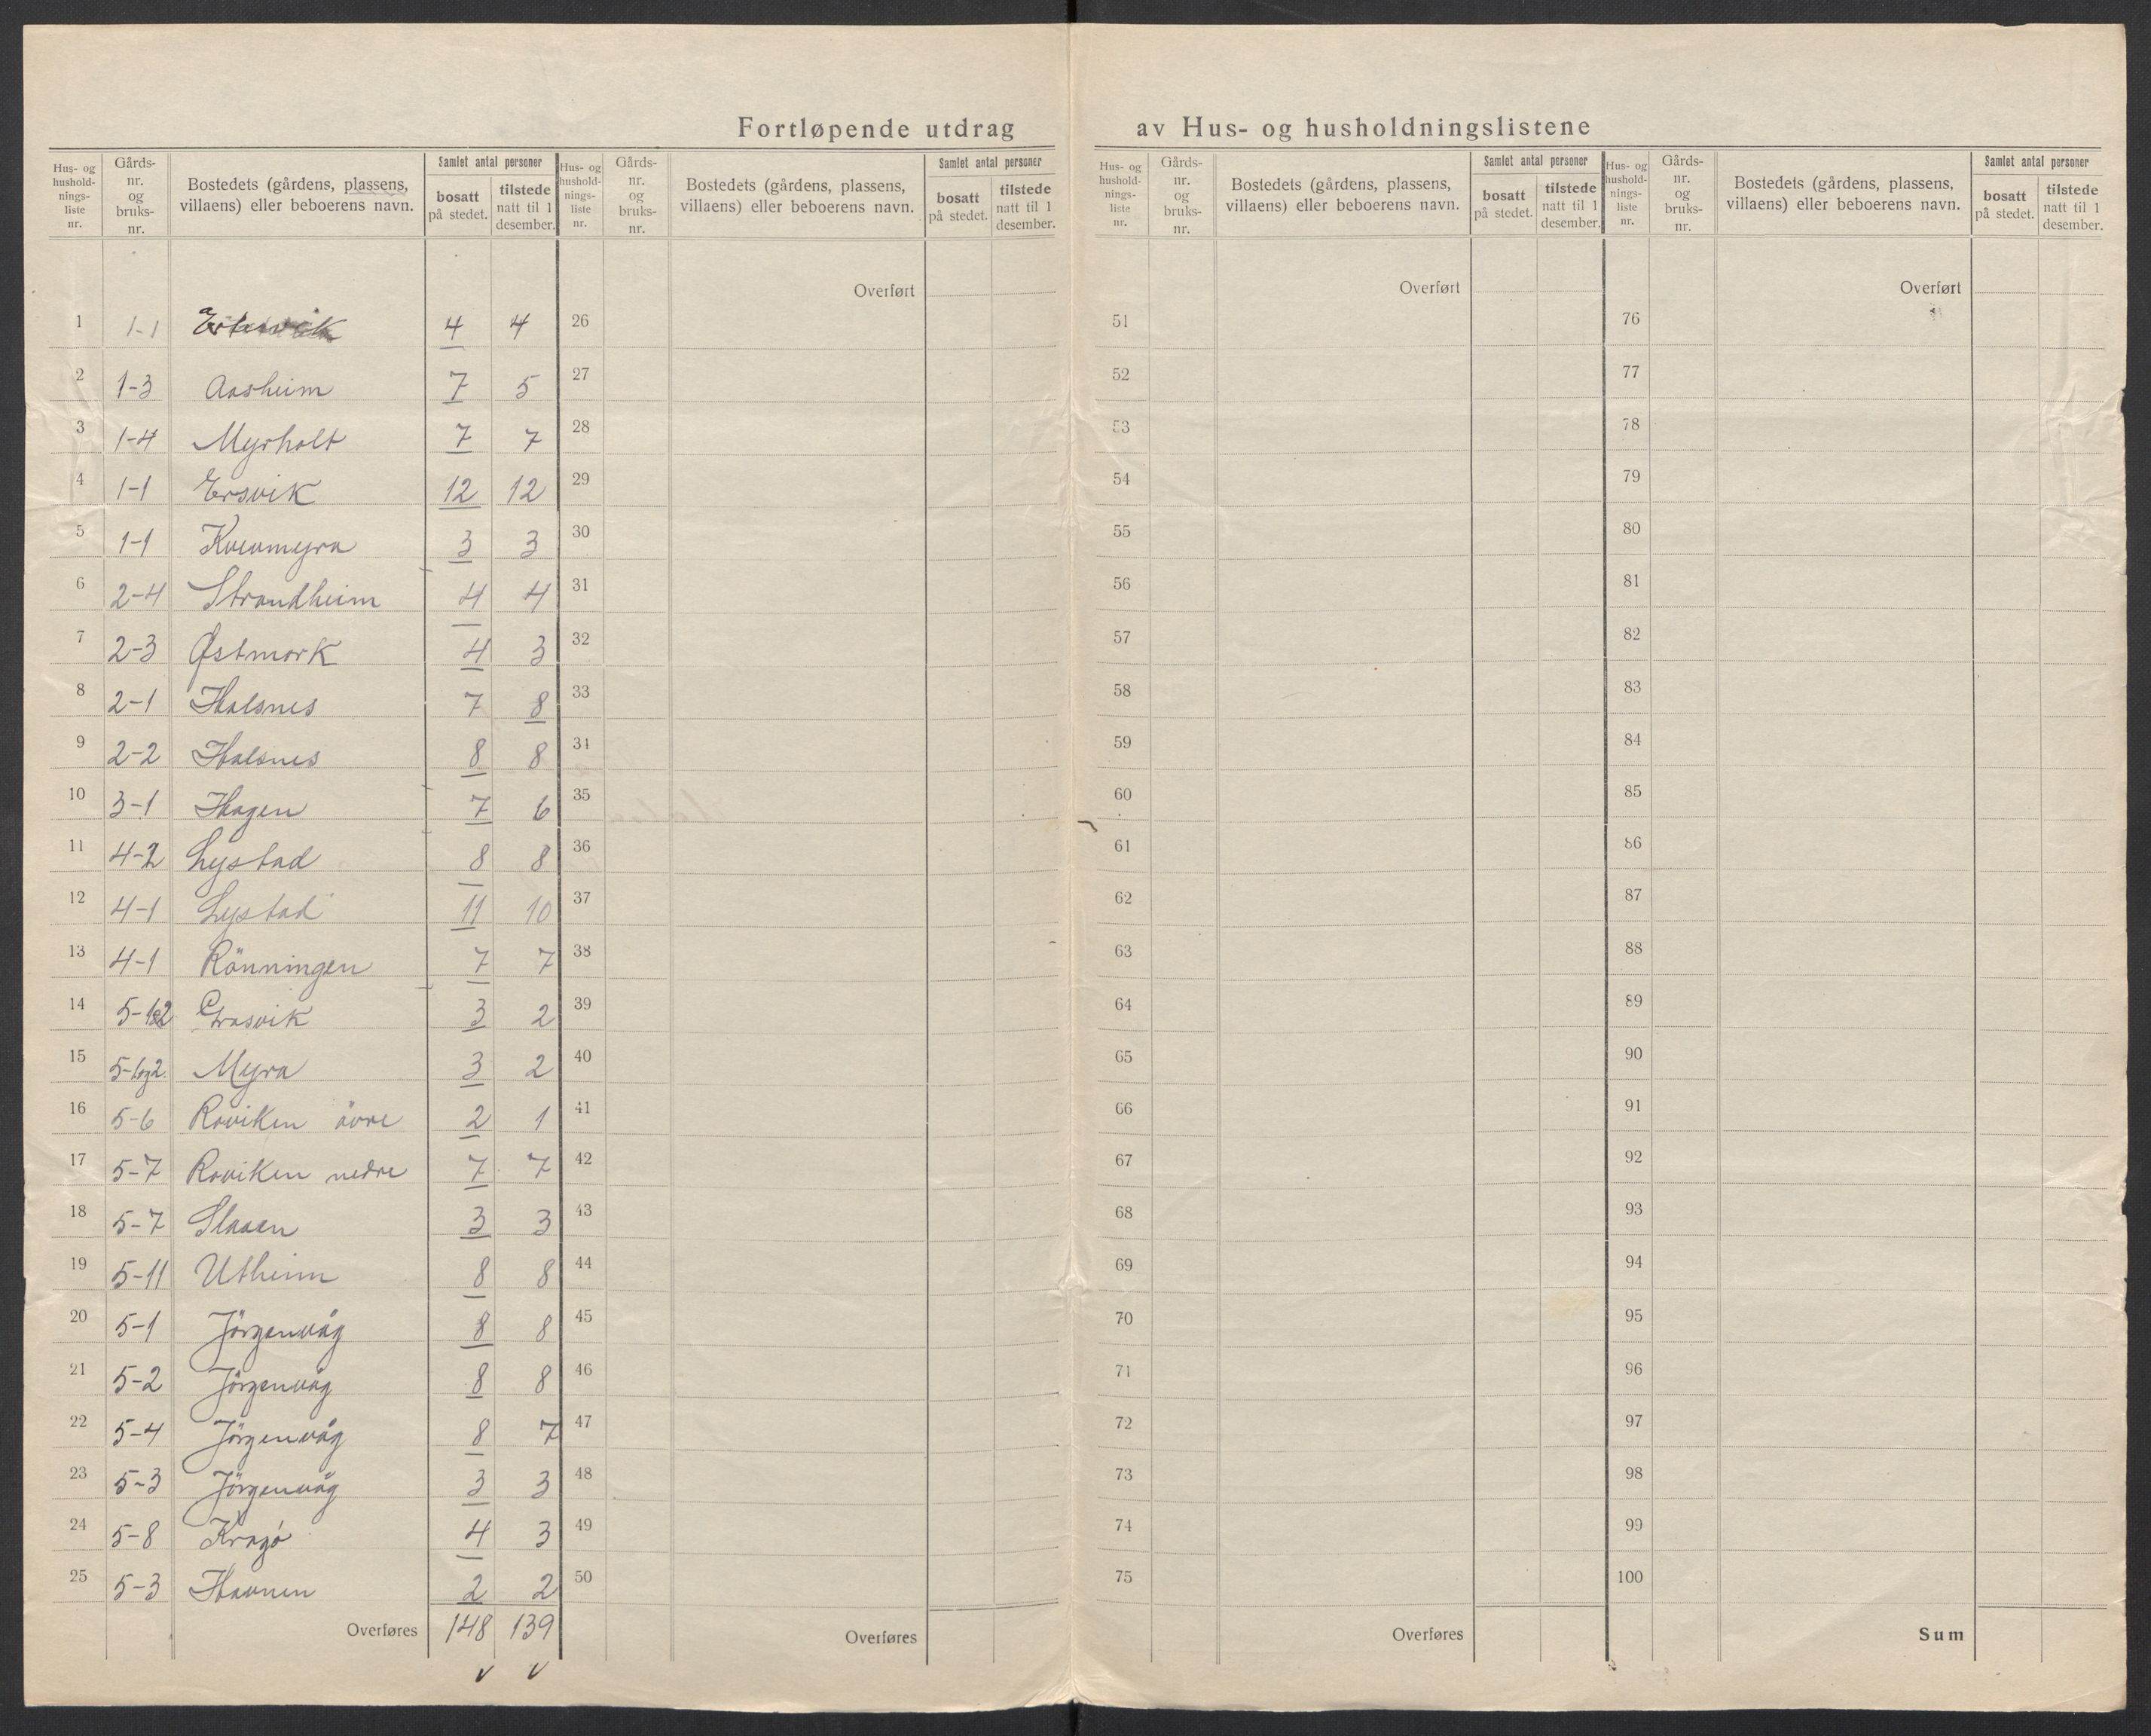 Fortløpende utdrag av Hus- og husholdningslistene
Hus- og hushold- nings- liste nr. | Gårds- nr. og bruks- nr. | Bostedets (gårdens, plassens, villaens) eller beboerens navn. | Samlet antal personer | bosatt på stedet. | tilstede natt til 1 desember.
Hus- og hushold- nings- liste nr. | Gårds- nr. og bruks- nr. | Bostedets (gårdens, plassens, villaens) eller beboerens navn. | Samlet antal personer | bosatt på stedet. | tilstede natt til 1 desember.
Hus- og hushold- nings- liste nr. | Gårds- nr. og bruks- nr. | Bostedets (gårdens, plassens, villaens) eller beboerens navn. | Samlet antal personer | bosatt på stedet. | tilstede natt til 1 desember.
Hus- og hushold- nings- liste nr. | Gårds- nr. og bruks- nr. | Bostedets (gårdens, plassens, villaens) eller beboerens navn. | Samlet antal personer | bosatt på stedet. | tilstede natt til 1 desember.
Overført Overført Overført
1 1-1 4 4 26 51 76
2 1-3 Aasheim 7 5 27 52 77
3 1-4 Myrholt 7 7 28 53 78
4 1-1 Ersvik 12 12 29 54 79
5 1-1 3 3 30 55 80
6 2-4 Strandheim 4 4 31 56 81
7 2-3 Østmork 4 3 32 57 82
8 2-1 Halsnes 7 8 33 58 83
9 2-2 Halsnes 8 8 34 59 84
10 3-1 Hagen 7 6 35 60 85
11 4-2 Lystad 8 8 36 61 86
12 4-1 Lystad 11 10 37 62 87
13 4-1 Rönningen 7 7 38 63 88
14 5-1&2 3 2 39 64 89
15 5-1og2. Myra 3 2 40 65 90
16 5-6 Roviken övre 2 1 41 66 91
17 5-7 Roviken nedre 7 7 42 67 92
18 5-7 3 3 43 68 93
19 5-11 Utheim 8 8 44 69 94
20 5-1 Jörgenvåg 8 8 45 70 95
21 5-2 Jörgenvåg 8 8 46 71 96
22 5-4 Jörgenvåg 8 7 47 72 97
23 5-3 Jörgenvåg 3 3 48 73 98
24 5-8 4 3 49 74 99
25 5-3 Havnen 2 2 50 75 100
Overføres 148 139 Overføres Overføres Sum